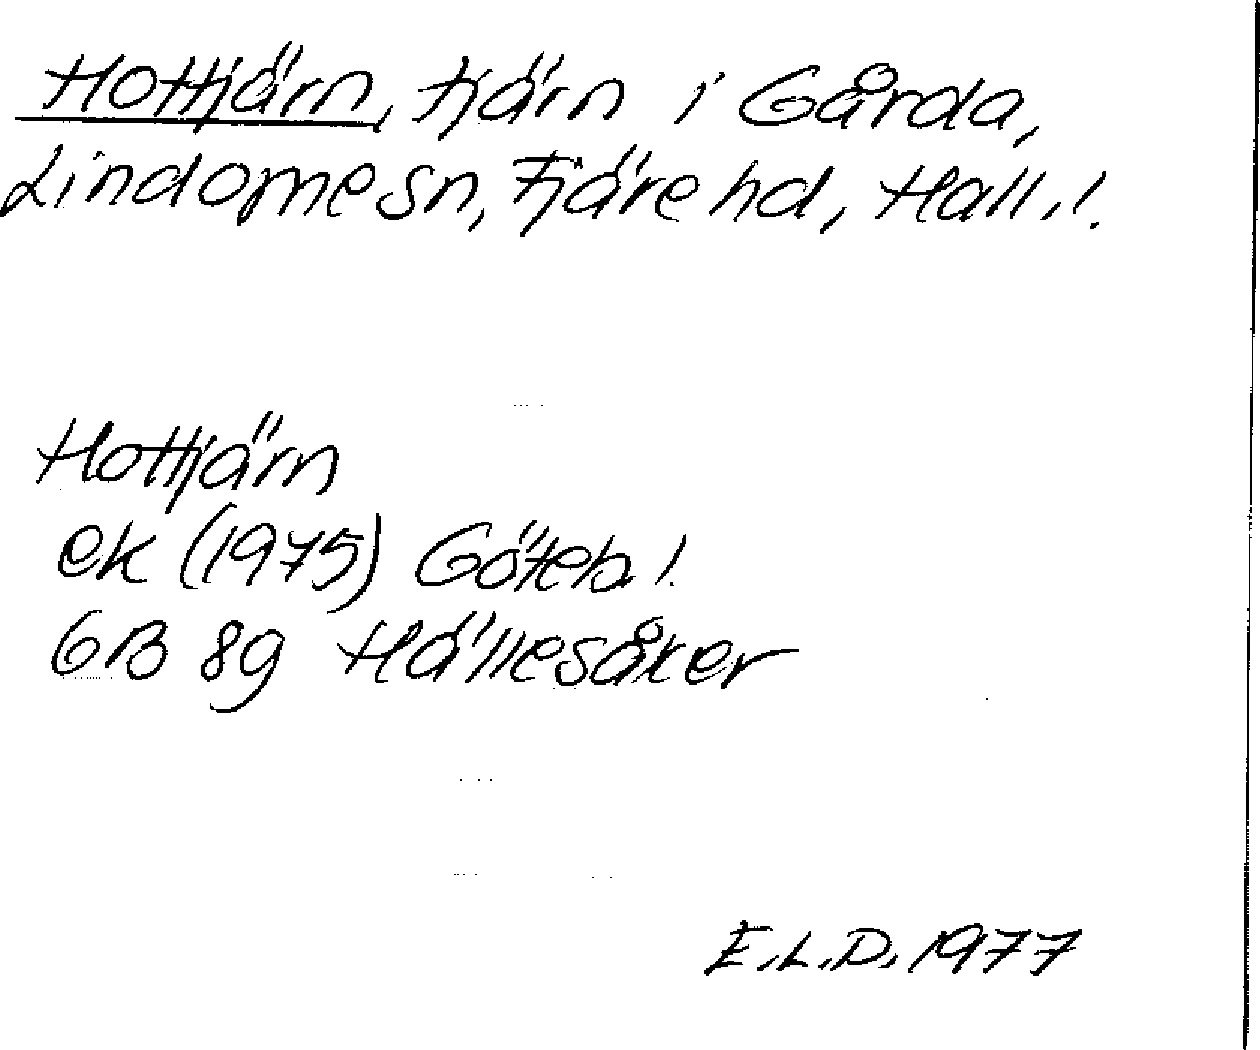 Hottjärn, tjärn i Gårda,
Lindome sn, Fjäre hd, Hall. l.
Hottjärn
ek (1975) Göteb l.
6B 8g Hällesåker
E.L.D. 1977